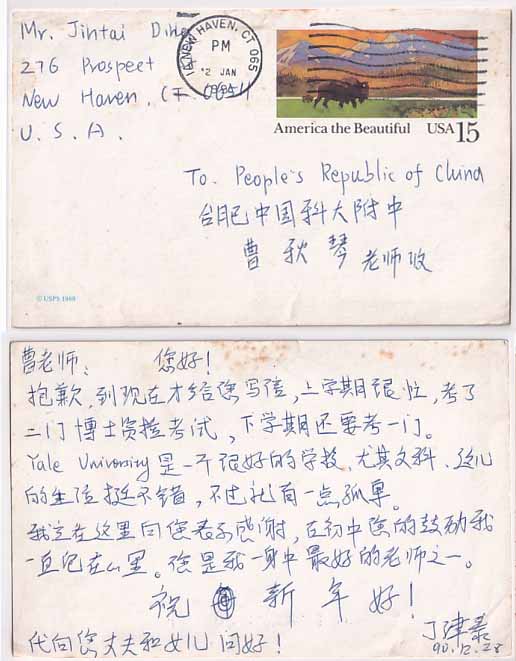 Mr. Jintai
276 Prospect
New Haven, CT
U.S.A.
NEW HAVEN, CT 065
PM
2 JAN
America the Beautiful USA 15
To. People's Republic of China
合肥中国科大附中
曹秋琴 老师收
© USPS 1988
曹老师: 您好!
抱歉,到现在才给您写信,上学期很忙,考了
二门博士资格考试,下学期还要考一门。
Yale University 是一所很好的学校,尤其文科,这儿
的生活挺不错,不过就有一点孤单。
我 在这里向您表示感谢,在初中您的鼓励我
一直记在心里。您是我一身中最好的老师之一。
祝 新年好!
丁津泰
代向您丈夫和女儿问好!
90.12.28